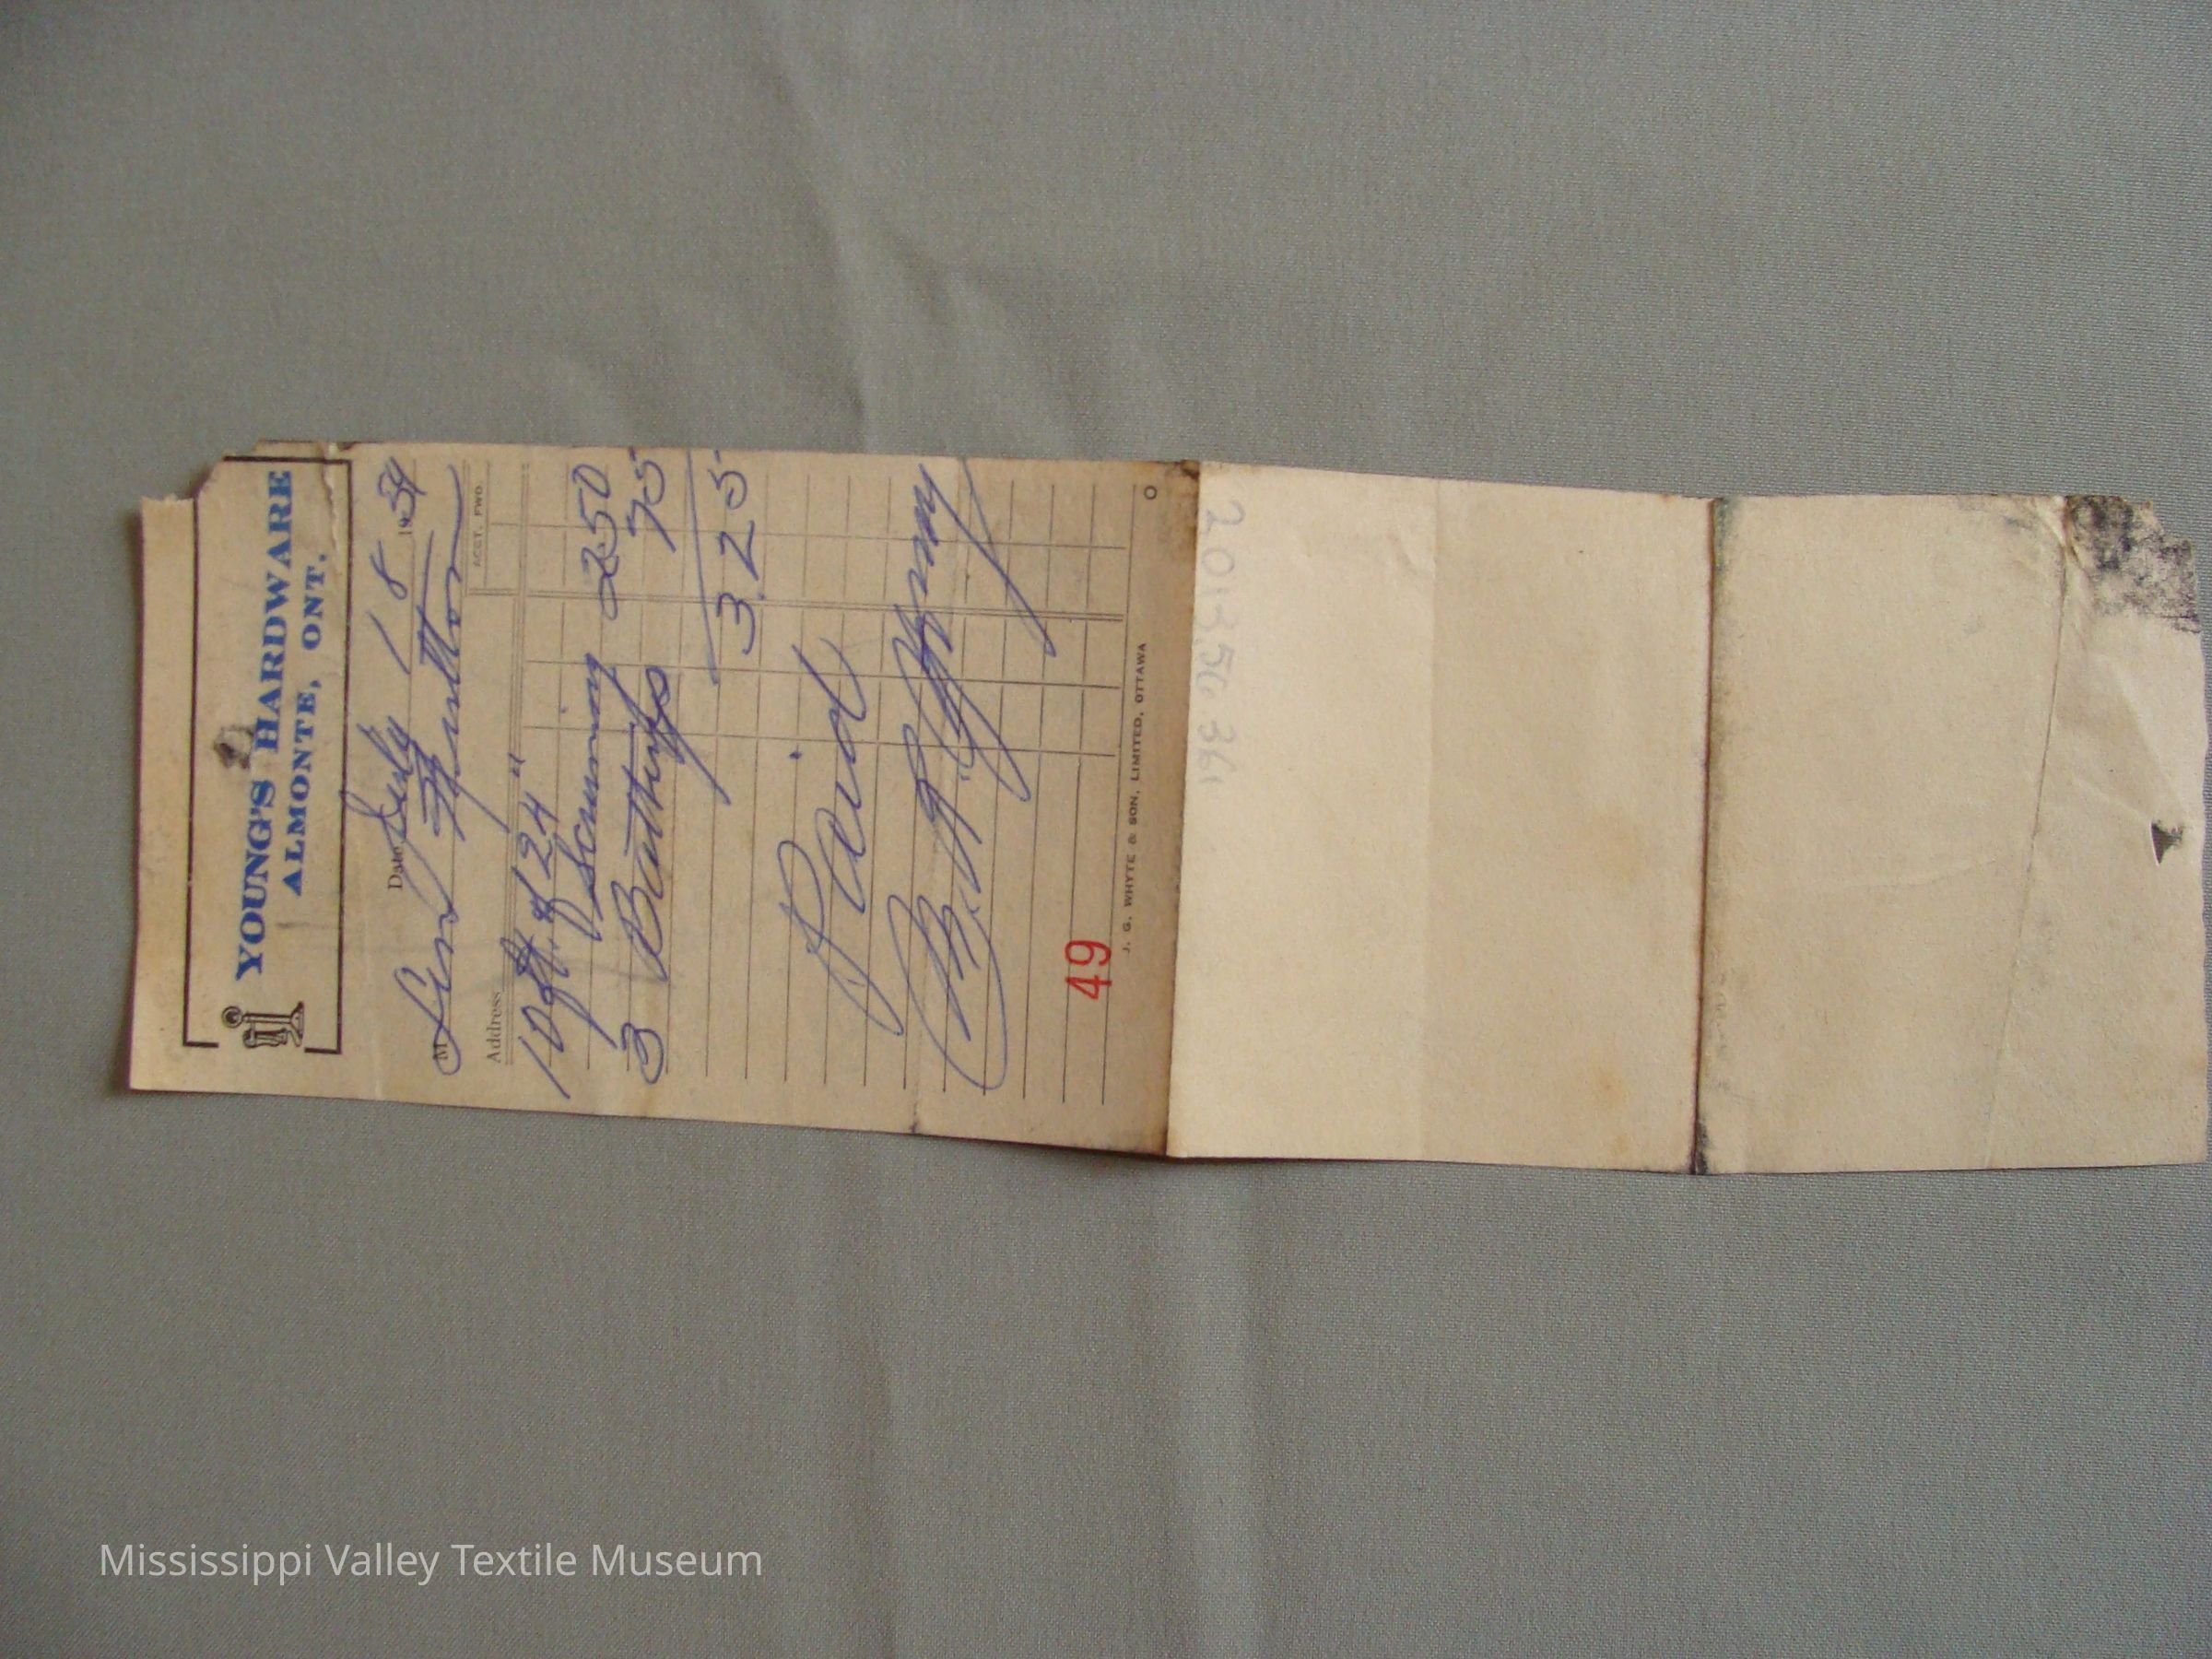 YOUNG'S HARDWARE
ALMONTE, ONT.
Date July 18 1954
M
ACCT. FWD.
Address
10 ft. of 24"
Screening 2 50
3 Battings 75
3.25
Paid
49
J. G. WHYTE & SON, LIMITED, OTTAWA
2013.50.361
Mississippi Valley Textile Museum